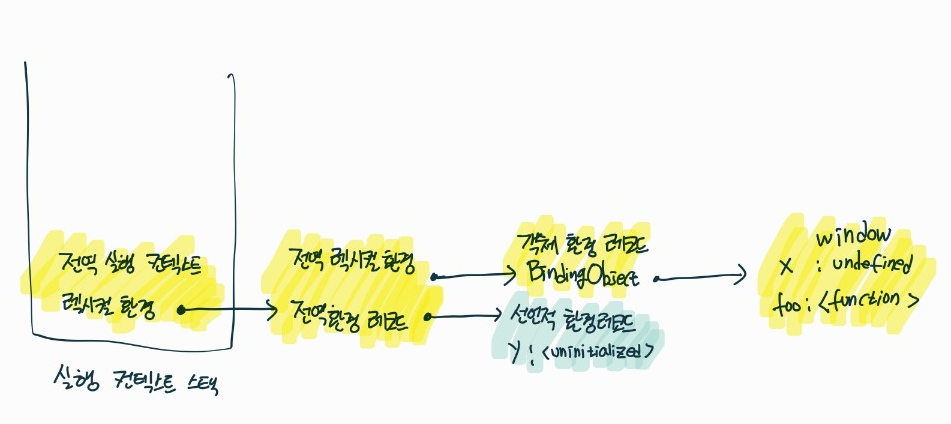 전역 실행 컨텍스트
렉시컬 환경
실행 컨텍스트 스택
전역 렉시컬 환경
전역환경 레코드
객체 환경 레코드
BindingObject
선언적 환경레코드
y : <uninitialized>
window
x : undefined
foo : <function>